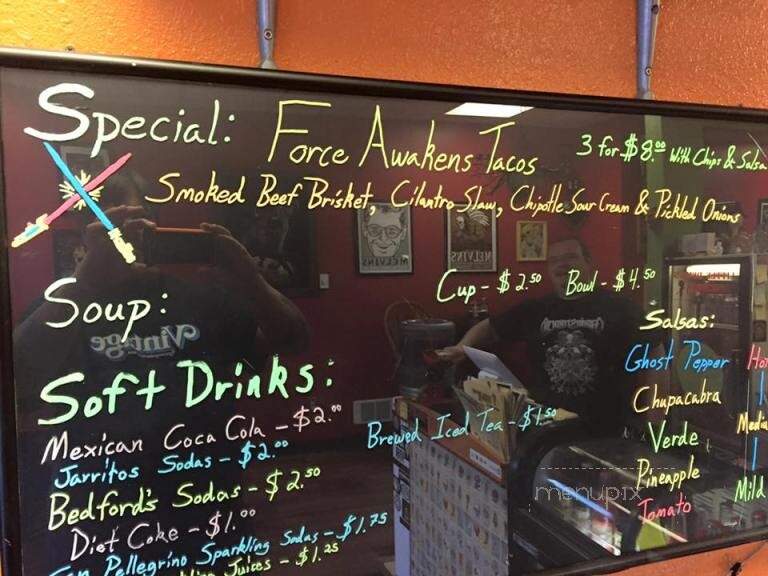 Special: Force Awakens Tacos 3 for $8.00 with Chips & Salsa
Smoked Beef Brisket, Cilantro Slaw, Chipotle Sour Cream & Pickled Onions
Soup: Cup - $2.50 Bowl - $4.50
Soft Drinks:
Mexican Coca Cola - $2.00
Jarritos Sodas - $2.00
Bedford's Sodas - $2.50
Diet Coke - $1.00
San Pellegrino Sparkling Sodas - $1.75
Juices - $1.25
Brewed Iced Tea - $1.50
Salsas:
Ghost Pepper
Chupacabra
Verde
Pineapple
Tomato
Mild
MELVINS
MELVINS
Vintage
menupix